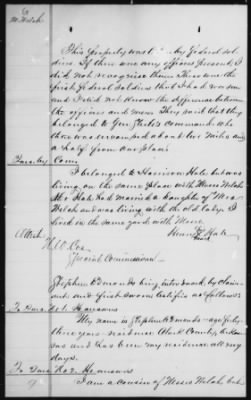 6
M. Welch
This property was t by Federal sol-
diers. If there was any officers present, I
did not recognize them. These were the
first Federal soldiers that I had ever seen
and I did not know the difference between
the officers and men. They said that they
belonged to Gen. command who
there was encamped about two miles and
a half from our place.
Ques. by Com.
I belonged to Harrison Hale but was
living on the same place with Moses Welch.
Mr Hale had married a daughter of Moses
Welch and was living with the old lady. I
lived in the same yard with Moses
Hale
mark
Attest.
Cox
Special Commissioner
Stephen Edmonds being introduced by claim-
ant and first sworn testifies as follows:
To Ques. No 1. He answers
My name is Stephen Edmonds - age fifty-
three years - residence County, Arkan-
sas and has been my residence all my
days.
To Ques No 2. He answers
I am a cousin of Moses Welch but